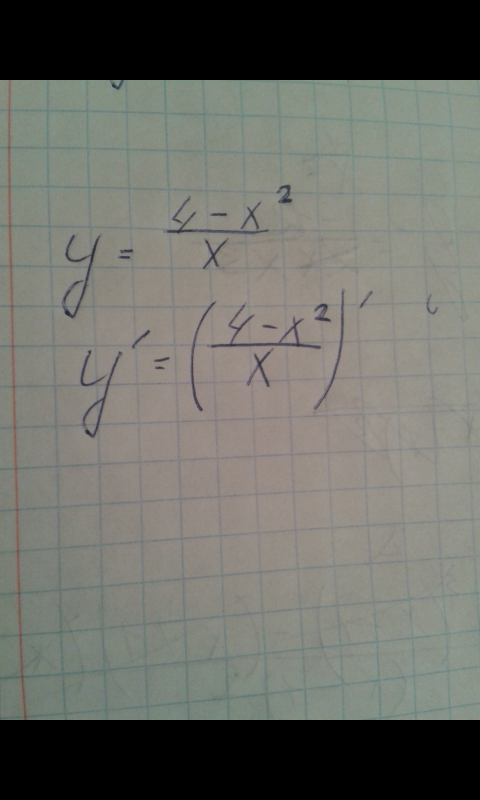 y = (4 - x²)/x
y' = ((4 - x²)/x)'